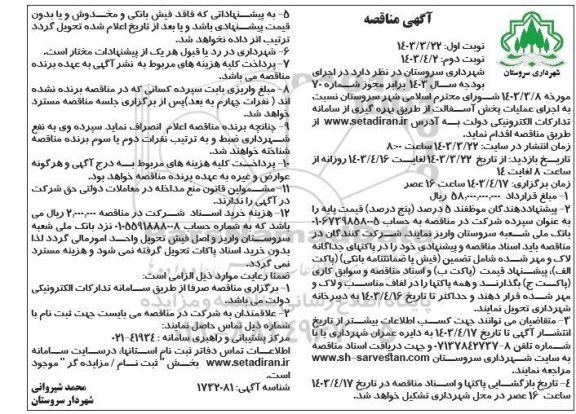 آگهی مناقصه
شهرداری سروستان
نوبت اول: 1403/3/22
نوبت دوم: 1403/4/2
شهرداری سروستان در نظر دارد در اجرای
بودجه سال 1403 برابر مجوز شماره 70
مورخه 1403/3/8 شورای محترم اسلامی شهر سروستان نسبت
به اجرای عملیات پخش آسفالت از طریق بهره گیری از سامانه
تدارکات الکترونیکی دولت به آدرس www.setadiran.ir از
طریق مناقصه اقدام نماید.
زمان انتشار در سایت: 1403/3/22 ساعت 8:00
تاریخ بازدید: از تاریخ 1403/3/22 لغایت 1403/4/16 روزانه از
ساعت 8 لغایت 14
زمان برگزاری: 1403/4/17 ساعت 16 عصر
1- مبلغ قرارداد 58,000,000,000 ریال
2- پیشنهاددهندگان موظفند 5 درصد (پنج درصد) قیمت پایه را
به عنوان سپرده شرکت در مناقصه به حساب 01067398580005
بانک ملی شعبه سروستان واریز نمایند. شرکت کنندگان در
مناقصه باید اسناد مناقصه و پیشنهادی خود را در پاکتهای جداگانه
لاک و مهر شده شامل تضمین (فیش یا ضمانتنامه بانکی) (پاکت
الف)، پیشنهاد قیمت (پاکت ب) و اسناد مناقصه و سوابق کاری
(پاکت ج) بگذارند و همه پاکتها را در لفاف مناسب و لاک و
مهر شده قرار دهند و حداکثر تا تاریخ 1403/4/16 به دبیرخانه
شهرداری تحویل نمایند.
3- متقاضیان می توانند جهت کسب اطلاعات بیشتر از تاریخ
انتشار آگهی تا تاریخ 1403/4/17 به دایره عمران شهرداری یا با
شماره تلفن 8-07137842737 و جهت دریافت اسناد مناقصه
به سایت شهرداری سروستان www.sh-sarvestan.com
مراجعه نمایند.
4- تاریخ بازگشایی پاکتها و اسناد مناقصه در تاریخ 1403/4/17
ساعت 16 عصر در محل شهرداری تشکیل خواهد شد.
5- به پیشنهاداتی که فاقد فیش بانکی و مخدوش و یا بدون
قیمت پیشنهادی باشد و یا بعد از تاریخ اعلام شده تحویل گردد
ترتیب اثر داده نخواهد شد.
6- شهرداری در رد یا قبول هر یک از پیشنهادات مختار است.
7- پرداخت کلیه هزینه های مربوط به نشر آگهی به عهده برنده
مناقصه می باشد.
8- مبلغ واریزی بابت سپرده کسانی که در مناقصه برنده نشده
اند (نفرات چهارم به بعد) پس از برگزاری جلسه مناقصه مسترد
خواهد شد.
9- چنانچه برنده مناقصه اعلام انصراف نماید سپرده وی به نفع
شهرداری ضبط و به ترتیب نفرات دوم یا سوم برنده مناقصه
شناخته خواهند شد.
10- پرداخت کلیه هزینه های مربوط به درج آگهی و هرگونه
عوارض و غیره به عهده برنده مناقصه خواهد بود.
11- مشمولین قانون منع مداخله در معاملات دولتی حق شرکت
در آگهی را ندارند.
12- هزینه خرید اسناد شرکت در مناقصه 2,000,000 ریال می
باشد که به شماره حساب نزد بانک ملی شعبه
سروستان واریز و اصل فیش تحویل واحد امورمالی گردد لذا
بدون خرید اسناد پاکات تحویل گرفته نمی شود و هزینه مسترد
نمی گردد.
ضمنا رعایت موارد ذیل الزامی است:
1- برگزاری مناقصه صرفا از طریق سامانه تدارکات الکترونیکی
دولت می باشد.
2- علاقمندان به شرکت در مناقصه می بایست جهت ثبت نام با
شماره ذیل تماس حاصل نمایند:
مرکز پشتیبانی و راهبری سامانه: 41934-021
اطلاعات تماس دفاتر ثبت نام استانها، درسایت سامانه
www.setadiran.ir بخش " ثبت نام / مزایده گر " موجود
است.
شناسه آگهی: 1732081
محمد شیروانی
شهردار سروستان